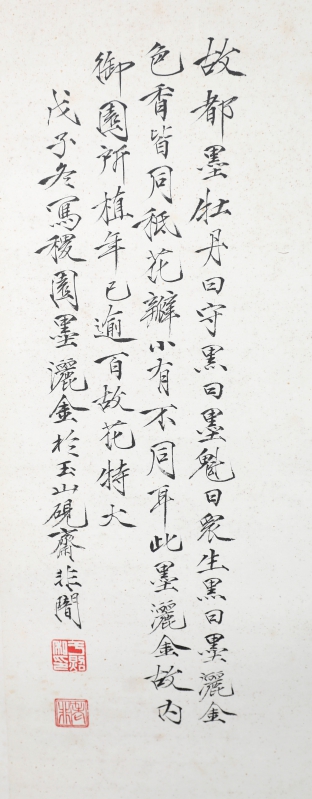 故都墨牡丹曰守黑曰墨魁曰衆生黑曰墨灑金
色香皆同秖花瓣小有不同耳此墨灑金故內
御園所植年已逾百故花特大
戊子冬寫稷園墨灑金於玉山硯齋非闇